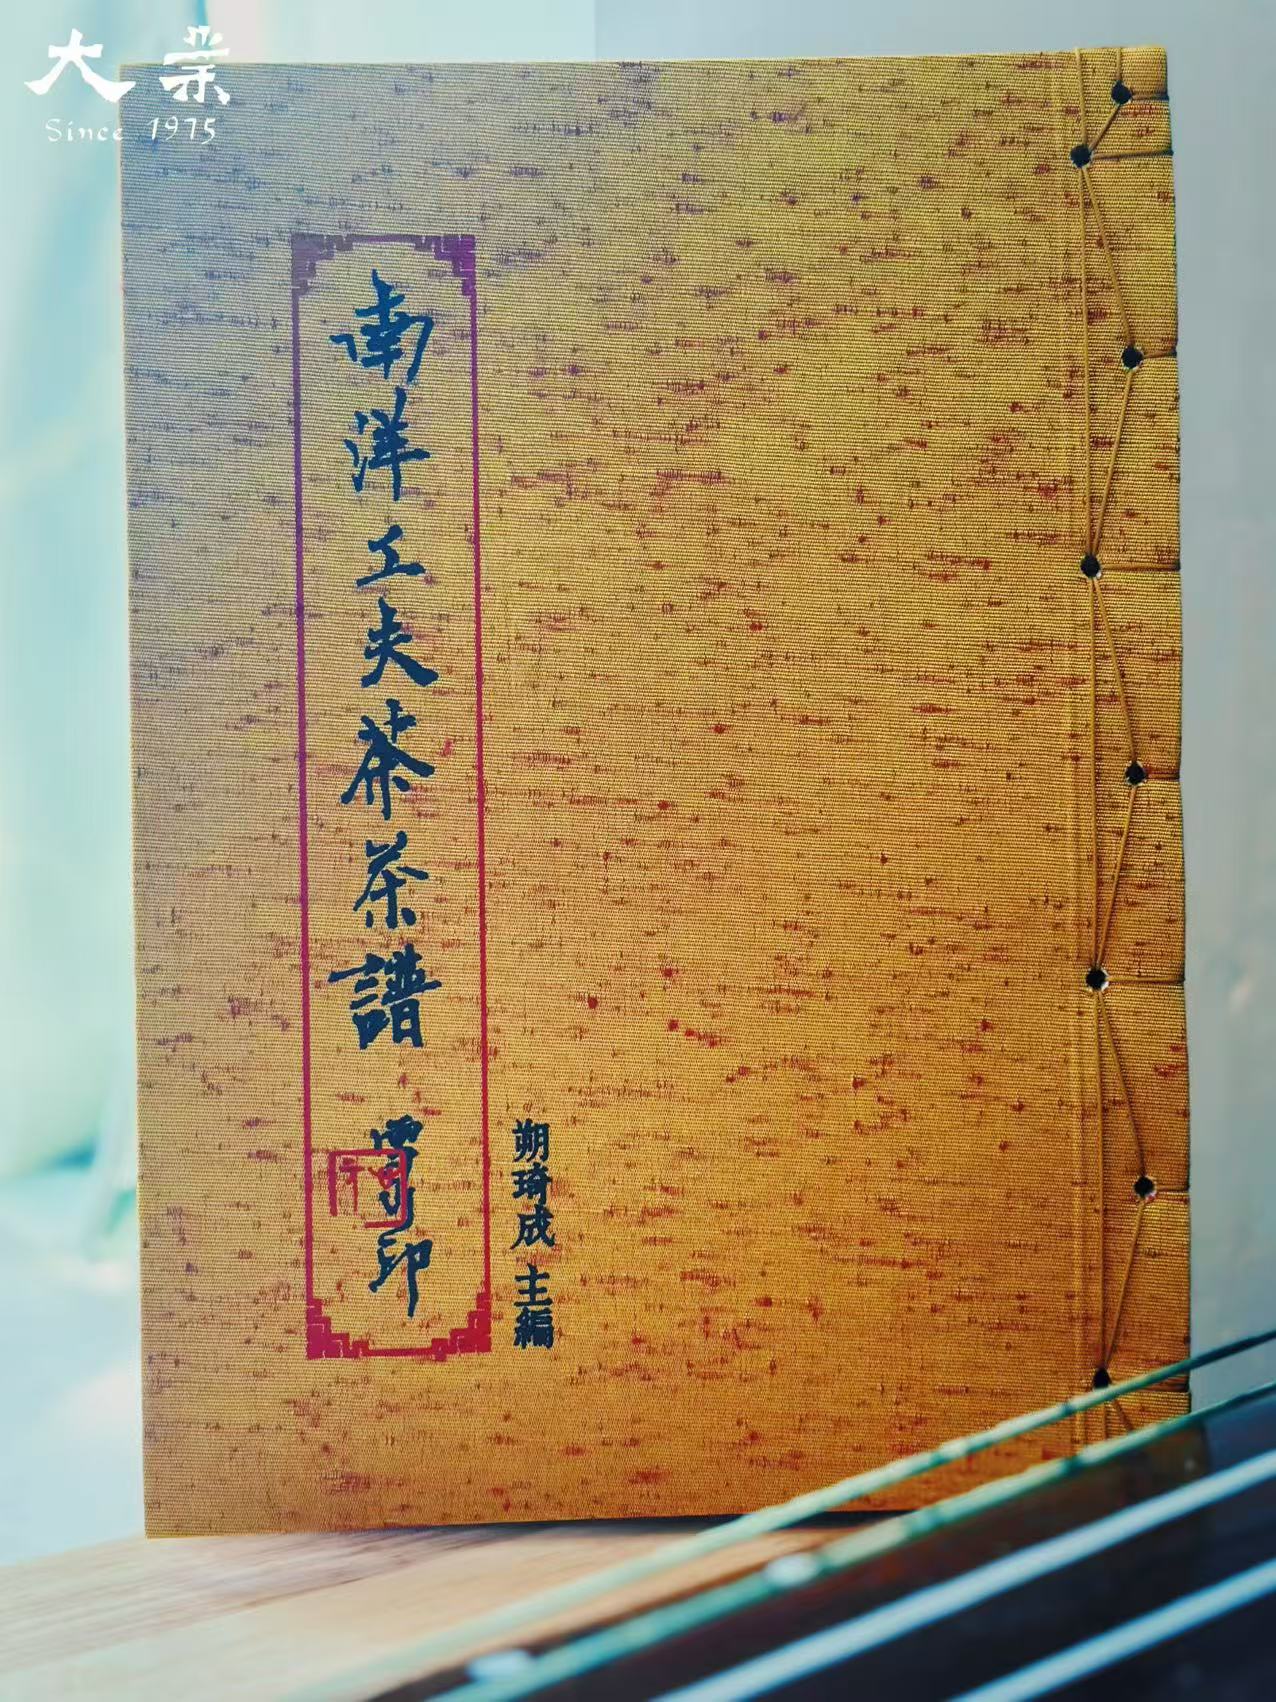 大業
Since 1975
南洋工夫茶茶譜
印
朔琦成 主編